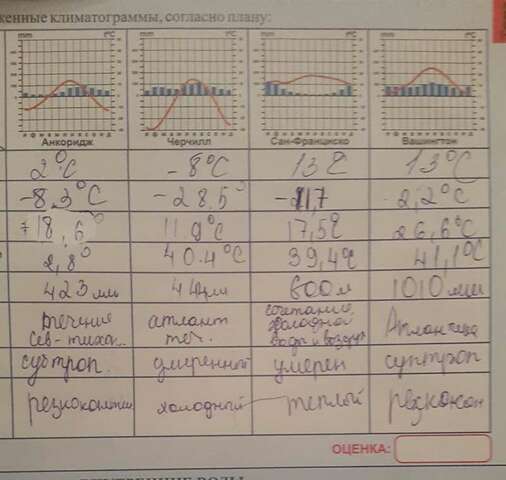 женные климатограммы, согласно плану:
mm t°C mm t°C mm t°C mm t°C
Анкоридж Черчилл Сан-Франциско Вашингтон
2°C -8°C 13°C 13°C
-8,3°C -28,5° -2,2°C
+18,6° 11,9°C 17,5° 26,6°C
2,8° 40.4°C 39,4° 41,1°C
423 мм 600 м 1010 мм
течение атлант сочетание Атлантика
сев-тихо.. теч. холодной
воды и воздуха
субтроп. умеренный умерен суптроп
холодный теплый
ОЦЕНКА: